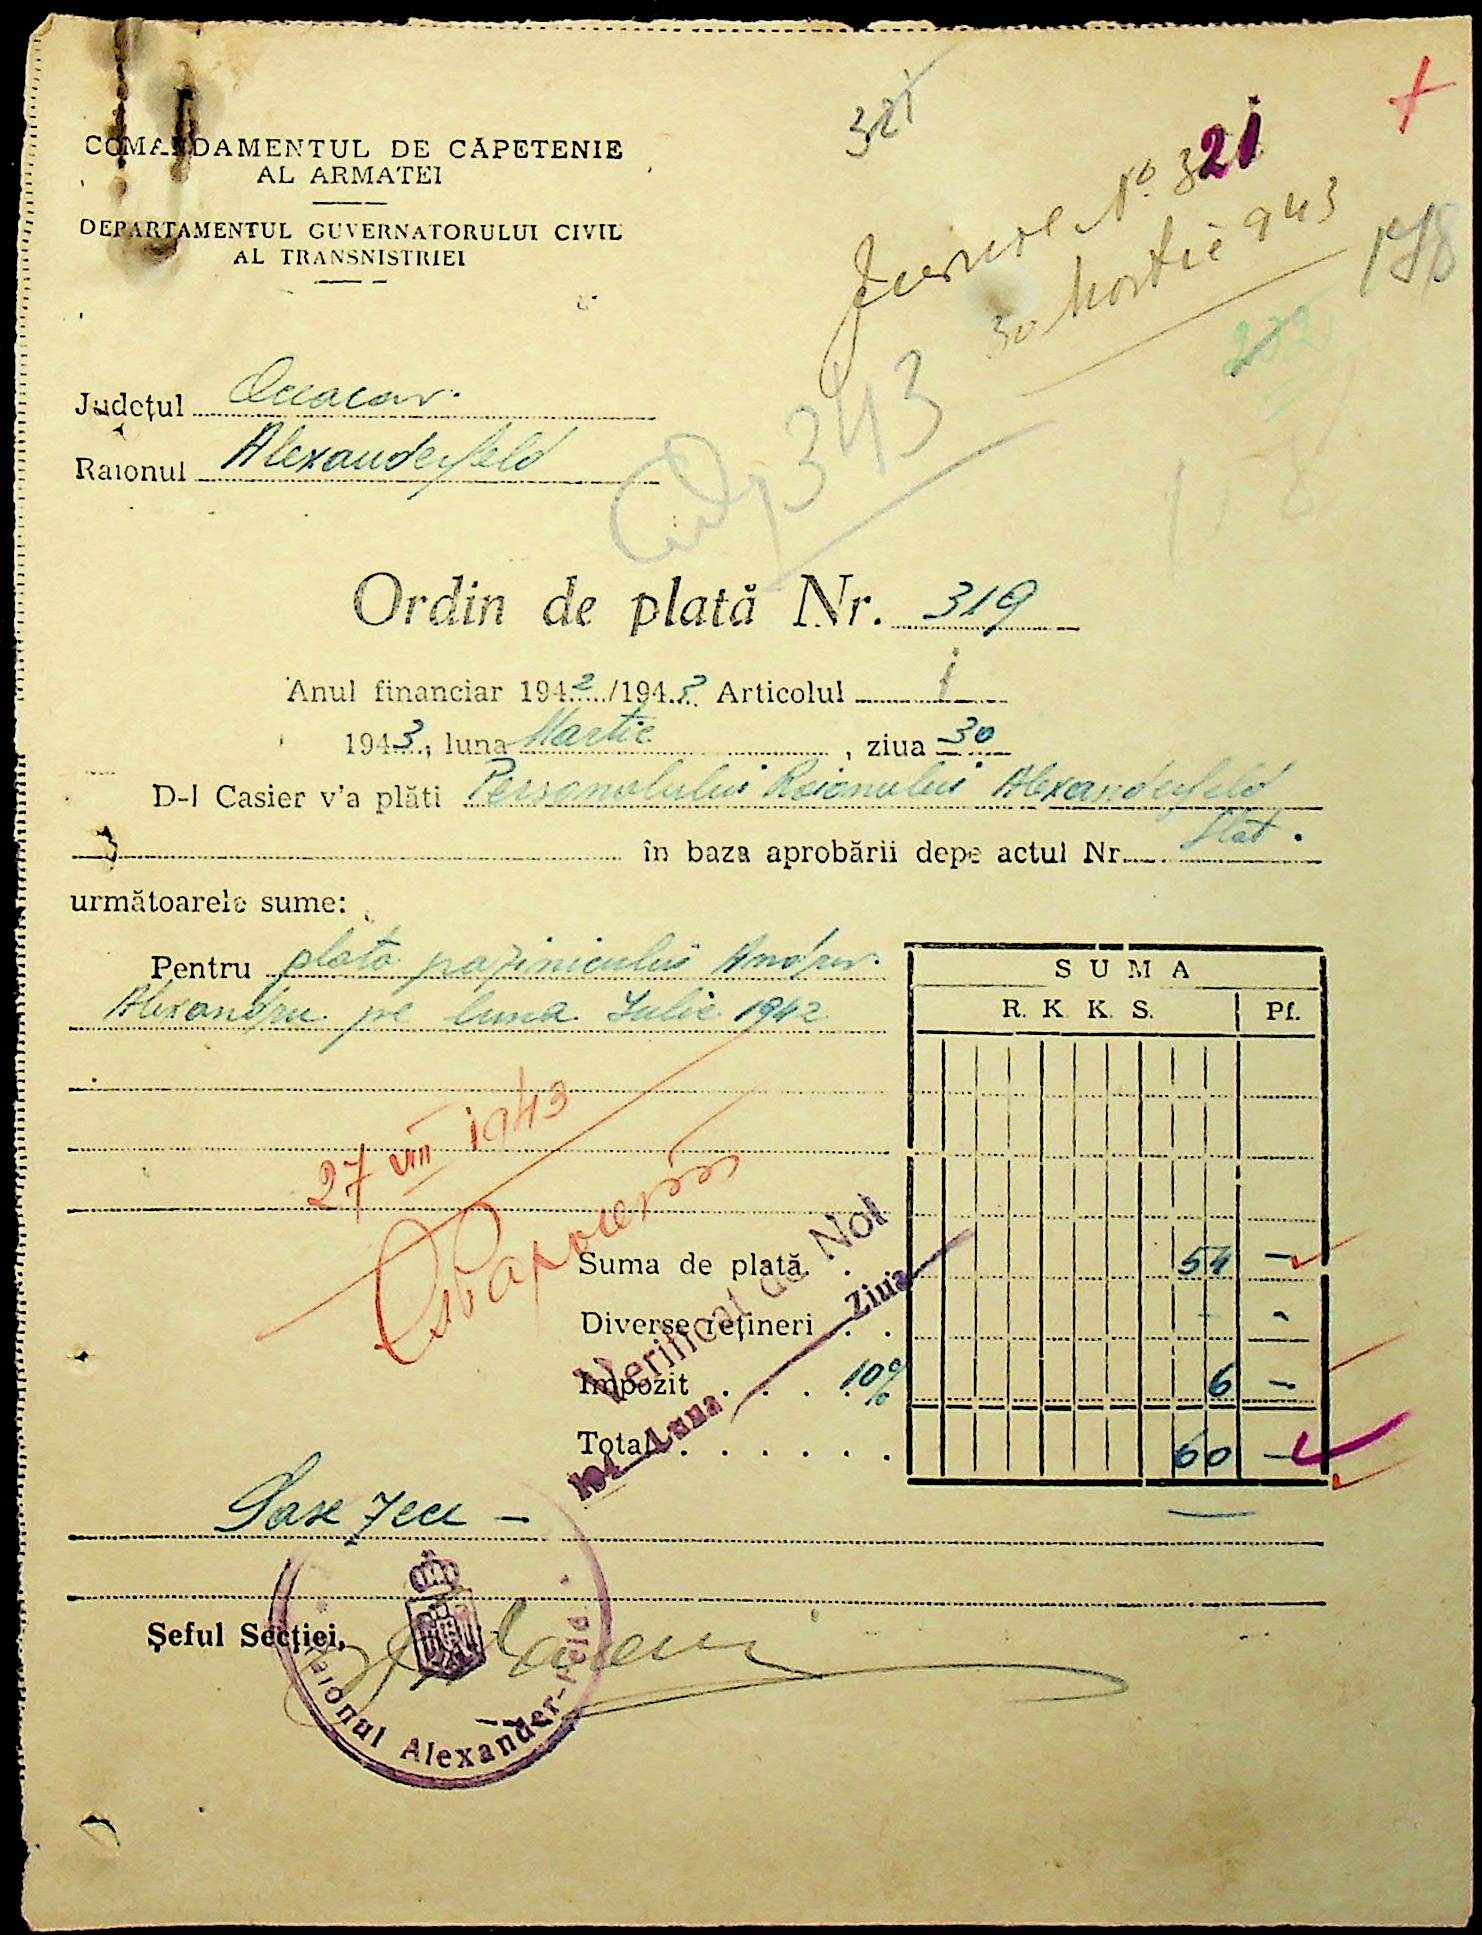 321
Jurnal No. 321
30 Martie 943
178
202
COMANDAMENTUL DE CĂPETENIE
AL ARMATEI
DEPARTAMENTUL GUVERNATORULUI CIVIL
AL TRANSNISTRIEI
Județul Oceacov.
Raionul Alexanderfeld
343
Ordin de plată Nr. 319
Anul financiar 1942/1943 Articolul 1
1943, luna Martie, ziua 30
D-l Casier v'a plăti Personalului Raionului Alexanderfeld
în baza aprobării depe actul Nr. Stat.
următoarele sume:
Pentru plata paznicului Andrei
Alexandru pe luna Iulie 1942
SUMA
R. K. K. S. Pf.
27 VIII 1943
Suma de plată. . 54 —
Diverse rețineri . . - -
Impozit . . . . 10% 6 —
Total . . . . . . . 60 —
Verificat de Noi
194 Luna Ziua
Șase zeci —
Șeful Secției,
Raionul Alexander-Feld